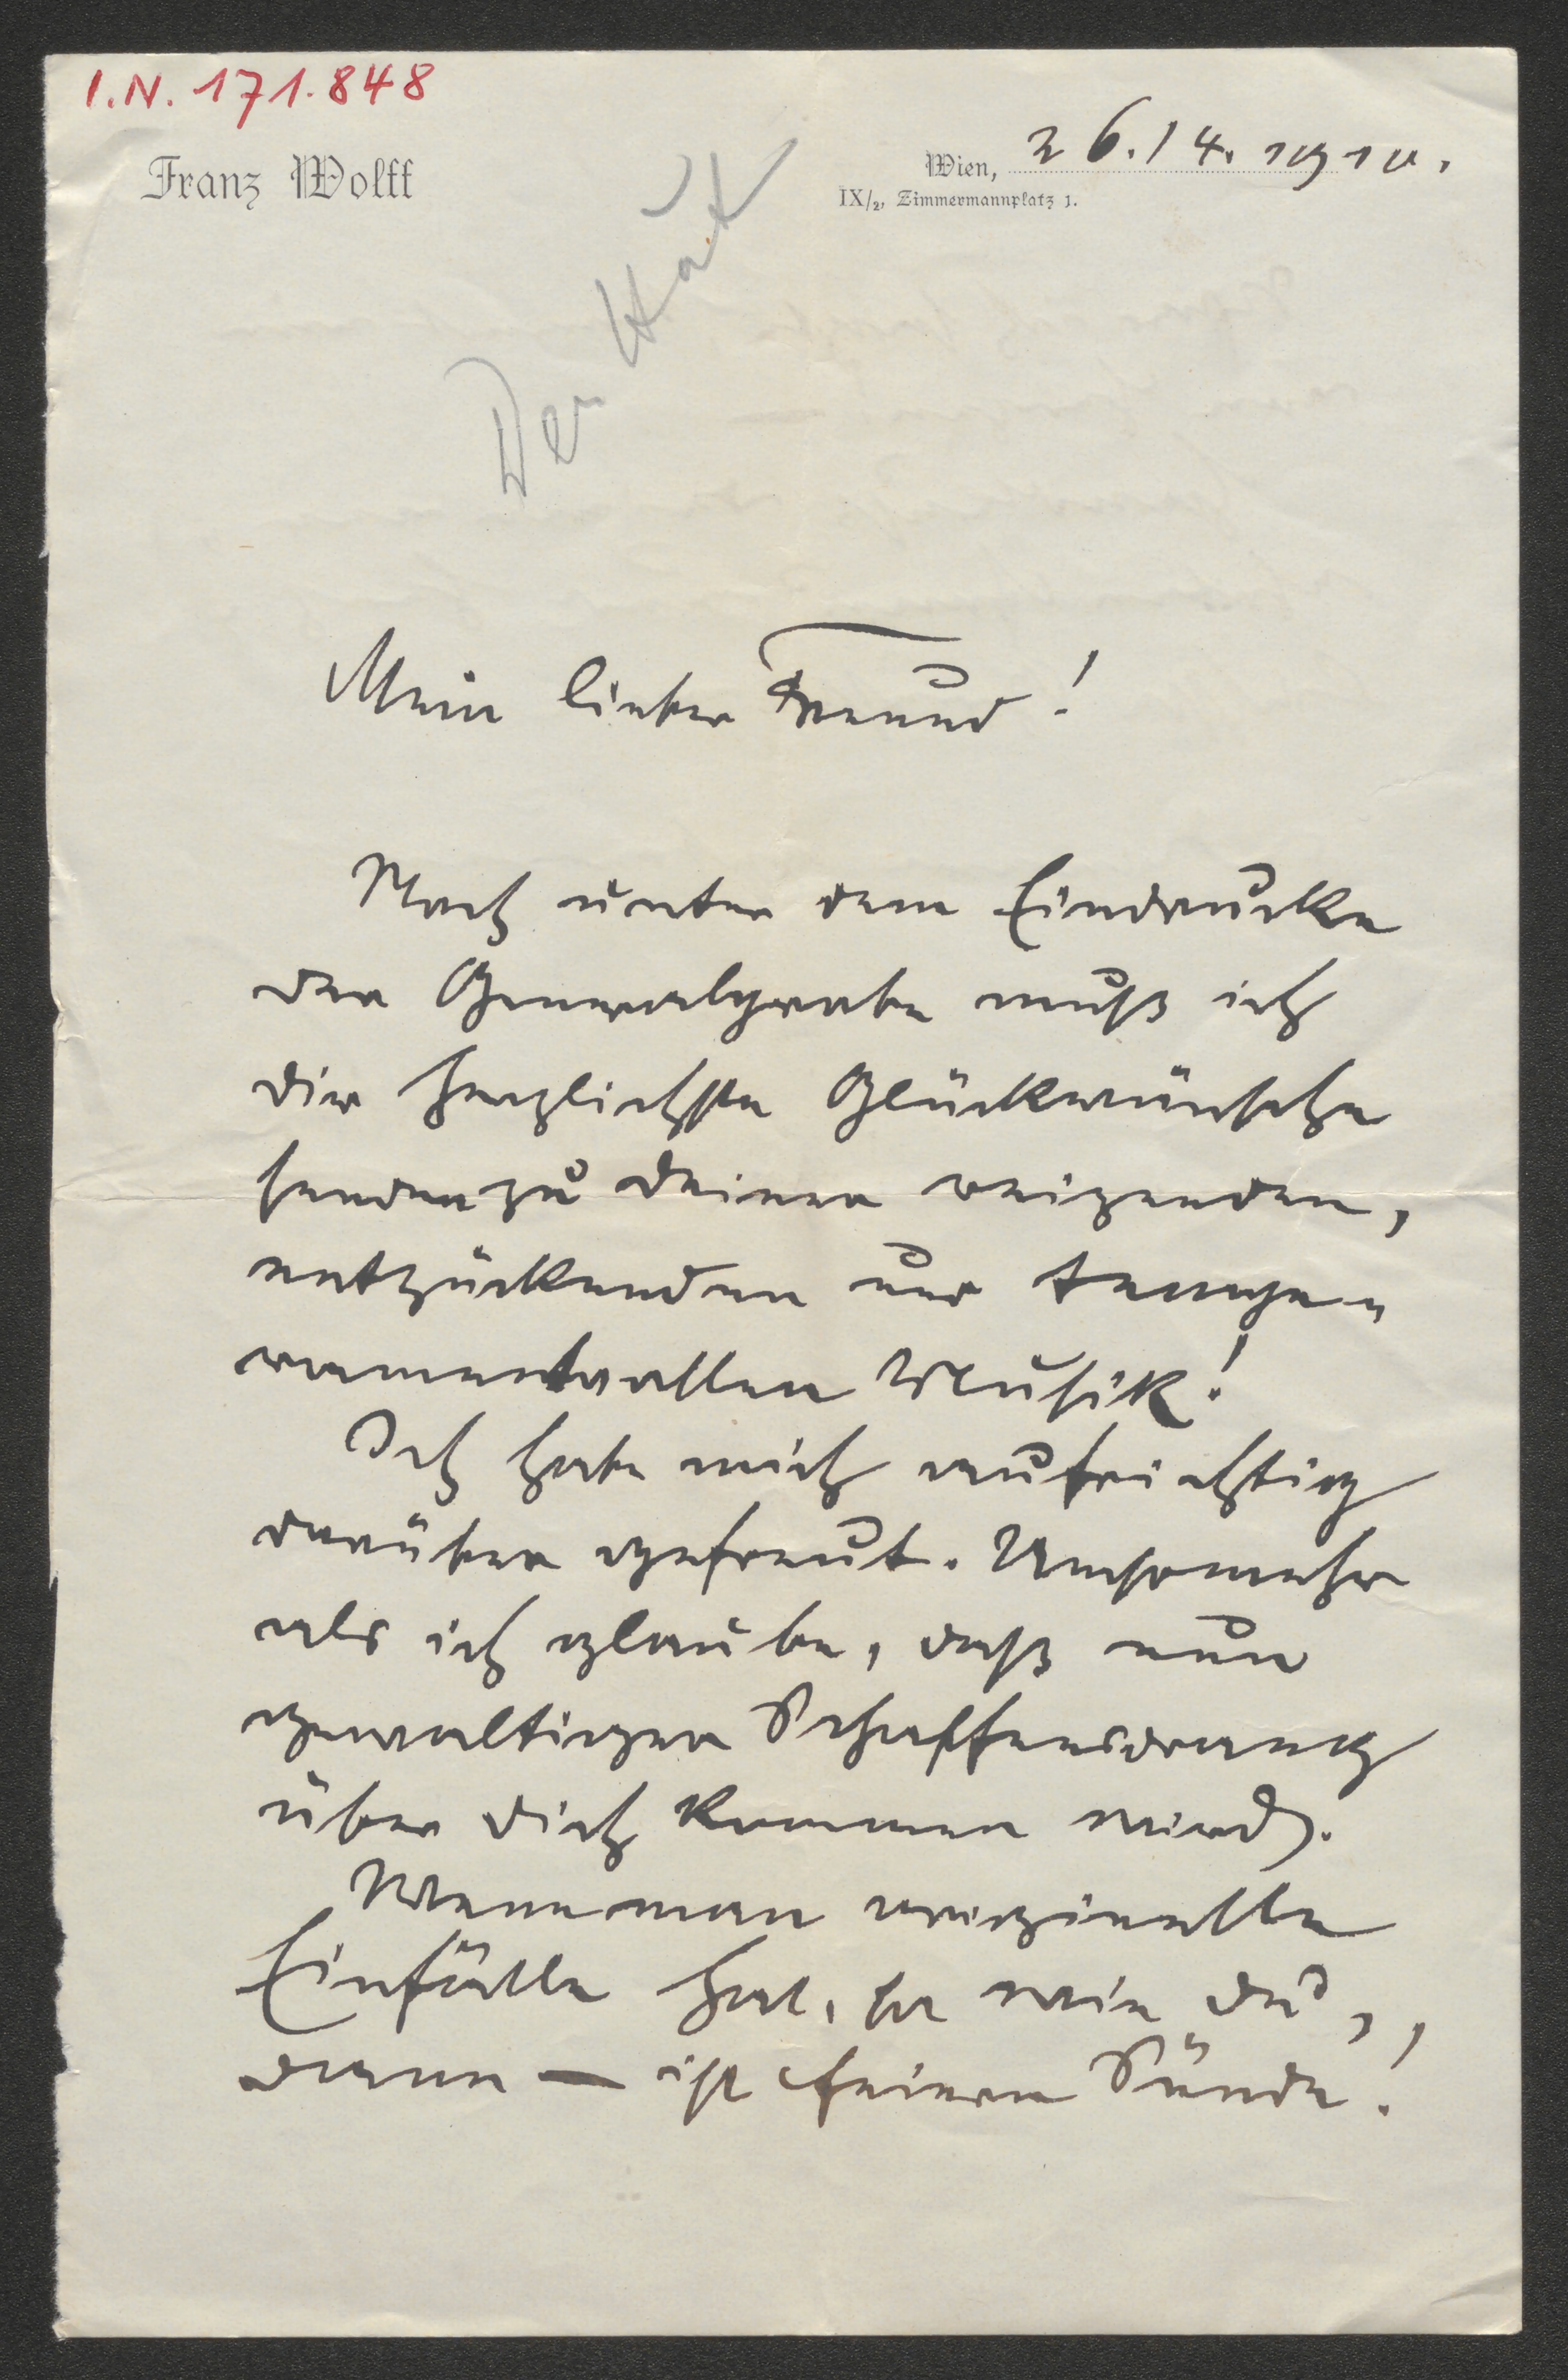 I.N. 171.848
Franz Wolff
Wien, 26./4. 1910.
IX/2, Zimmermannplatz 1.
Mein lieber Freund!
Noch unter dem Eindrucke
der Generalprobe muß ich
dir herzlichste Glückwünsche
senden zu deiner reizenden,
entzückenden und tempe-
ramentvollen Musik!
Ich habe mich aufrichtig
darüber gefreut. Umsomehr
als ich glaube, daß nun
gewaltiger Schaffensdrang
über dich kommen wird.
Wenn man originelle
Einfälle hat, so wie du,
dann — ist feiern Sünde!